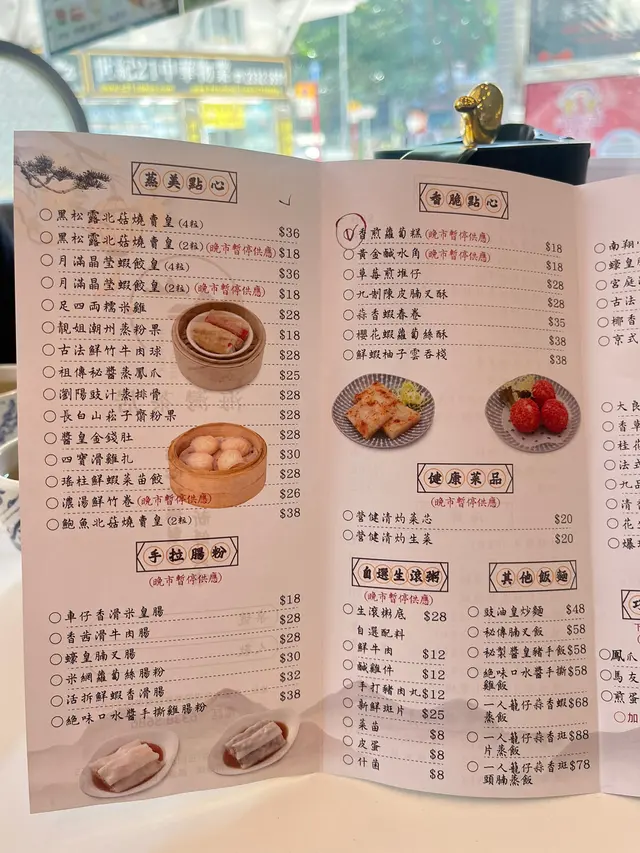 世紀21中華物業
蒸美點心
黑松露北菇燒賣皇(4粒) $36
黑松露北菇燒賣皇(2粒)(晚市暫停供應) $18
月滿晶瑩蝦餃皇(4粒) $36
月滿晶瑩蝦餃皇(2粒)(晚市暫停供應) $18
足四両糯米雞 $28
靚姐潮州蒸粉果 $18
古法鮮竹牛肉球 $28
祖傳秘醬蒸鳳爪 $25
瀏陽豉汁蒸排骨 $28
長白山崧子齋粉果 $28
醬皇金錢肚 $28
四寶滑雞扎 $30
瑤柱鮮蝦菜苗餃 $28
濃湯鮮竹卷(晚市暫停供應) $26
鮑魚北菇燒賣皇(2粒) $38
手拉腸粉
(晚市暫停供應)
車仔香滑米皇腸 $18
香茜滑牛肉腸 $28
蠔皇腩叉腸 $28
米網蘿蔔絲腸粉 $30
活拆鮮蝦香滑腸 $32
絕味口水醬手撕雞腸粉 $38
香脆點心
香煎蘿蔔糕(晚市暫停供應) $18
黃金鹹水角(晚市暫停供應) $18
草莓煎堆仔 $28
九制陳皮腩叉酥 $28
蒜香蝦春卷 $35
櫻花蝦蘿蔔絲酥 $38
鮮蝦柚子雲吞棧 $38
健康菜品
(晚市暫停供應)
營健清灼菜芯 $20
營健清灼生菜 $20
自選生滾粥
(晚市暫停供應)
生滾粥底 $28
自選配料
鮮牛肉 $12
鹹雞件 $12
手打豬肉丸 $12
新鮮斑片 $25
菜苗 $8
皮蛋 $8
什菌 $8
其他飯麵
豉油皇炒麵 $48
秘傳腩叉飯 $58
秘製醬皇豬手飯 $58
絕味口水醬手撕雞飯 $58
一人籠仔蒜香蝦蒸飯 $68
一人籠仔蒜香斑片蒸飯 $88
一人籠仔蒜香斑頭腩蒸飯 $78
南翔
蠔皇
宮庭
古法
椰香
京式
大良
香草
桂花
法式
九品
清香
鳳爪
馬友
煎蛋
加